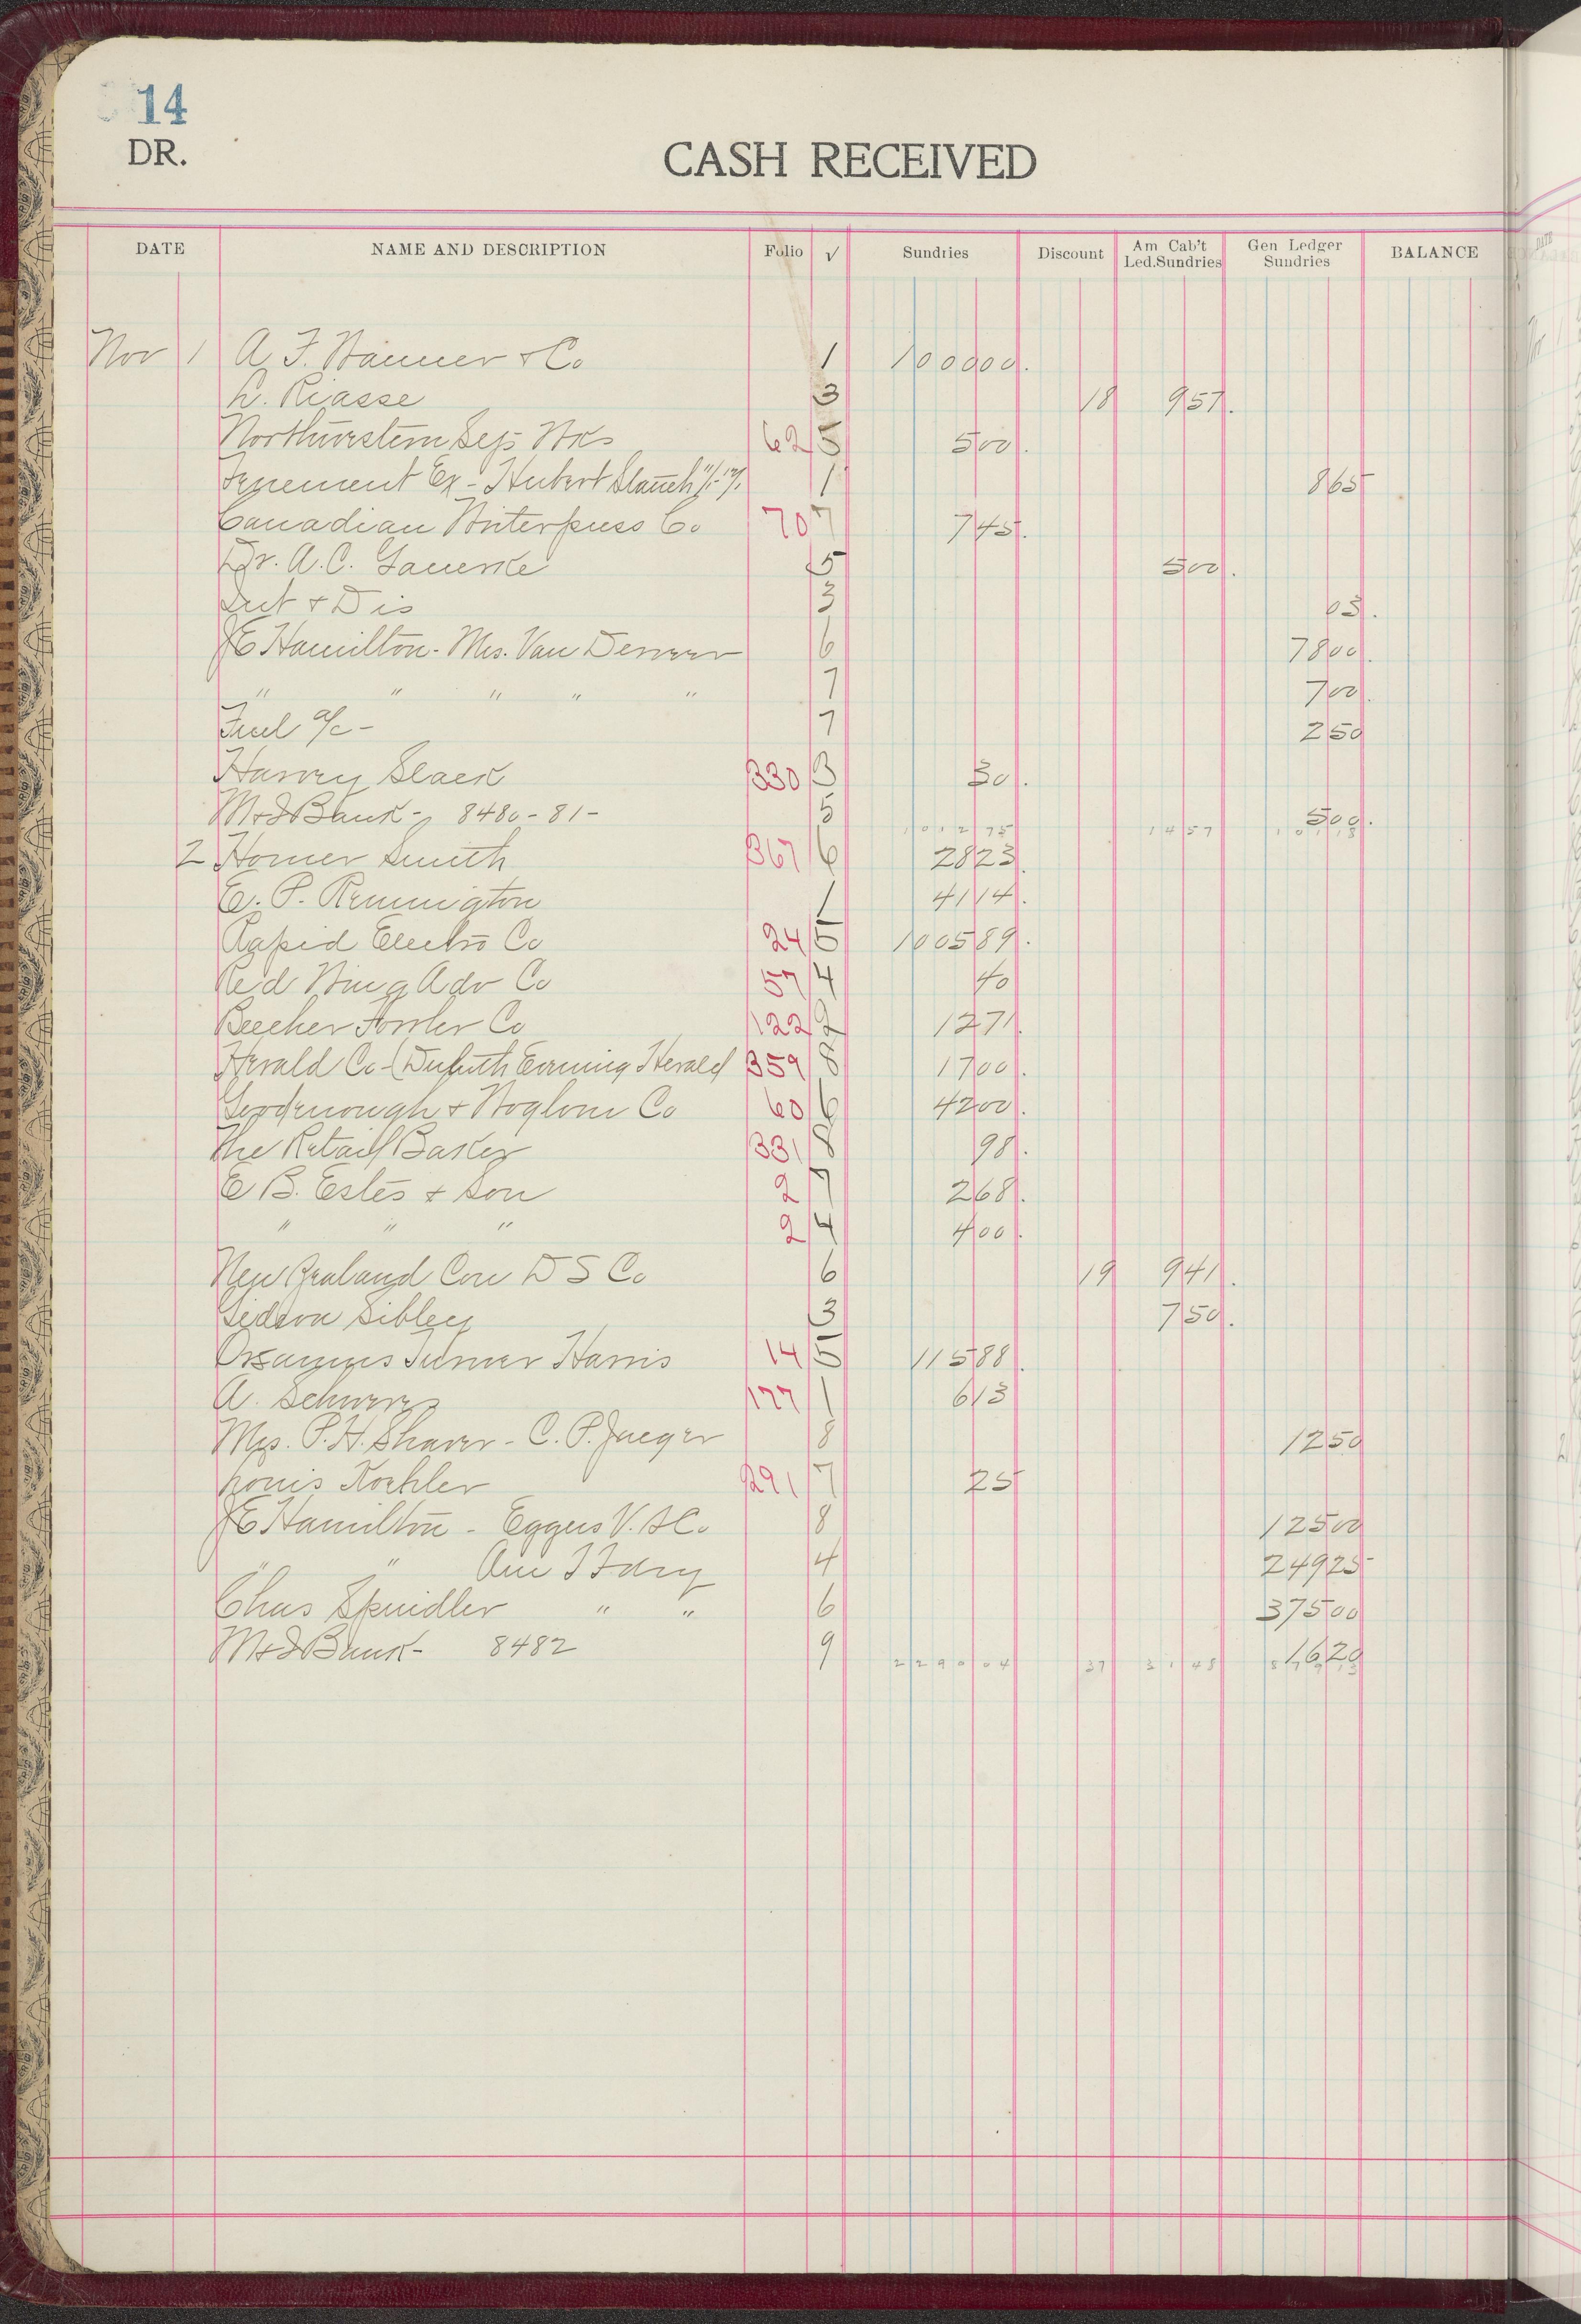 14
DR.
CASH RECEIVED
DATE NAME AND DESCRIPTION Folio √ Sundries Discount Am Cab't Led.Sundries Gen Ledger Sundries BALANCE
Nov 1 A. F. Wanner & Co 1 1000 00.
L. Riasse 3 18 9 57.
Northwestern Sep Wks 62 5 5 00.
Tenement Ex - Hubert 1 8 65
Canadian Winterpuss Co 70 7 7 45.
Dr. A. C. 5 5 00.
Int & Dis 3 03.
JE Hamilton - Mrs. Van Denver 6 78 00.
" " " " " 7 7 00.
Fuel a/c - 7 2 50
Harvey Slack 330 3 30.
M&I Bank - 8480-81- 5 5 00.
1012 75 14 57 101 18
2 Homer Smith 367 6 28 23.
E. P. Remmigton 1 41 14.
Rapid Electro Co 24 5 1005 89.
Red Wing Adv Co 57 4 40
Beecher Fowler Co 122 2 12 71.
Herald Co - (Duluth Evening Herald 359 8 17 00.
Goodenough & Woglom Co 60 6 42 00.
The Retail Baker 331 8 98.
E B. Estes & Son 2 7 2 68.
" " " 2 4 4 00.
New Zealand Con D S Co 6 19 9 41.
Gideon Sibley 3 7 50.
Turner Harris 14 5 115 88.
A. Schwerz 177 1 6 13
Mrs. P. H. Shaver - C. P. Jaeger 8 12 50
Louis Koehler 291 7 25
JE Hamilton - Eggers V. & Co 8 125 00
" " Am 4 249 25
Chas Spindler " " 6 375 00
M&I Bank - 8482 9 16 20
2290 04 37 31 48 879 13